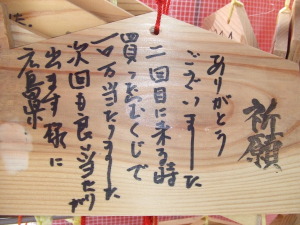 祈願
ありがとう
ございました
二回目に来る時
買った宝くじで
一万当たりました
次回も良い当たりが
出ます様に
広島県